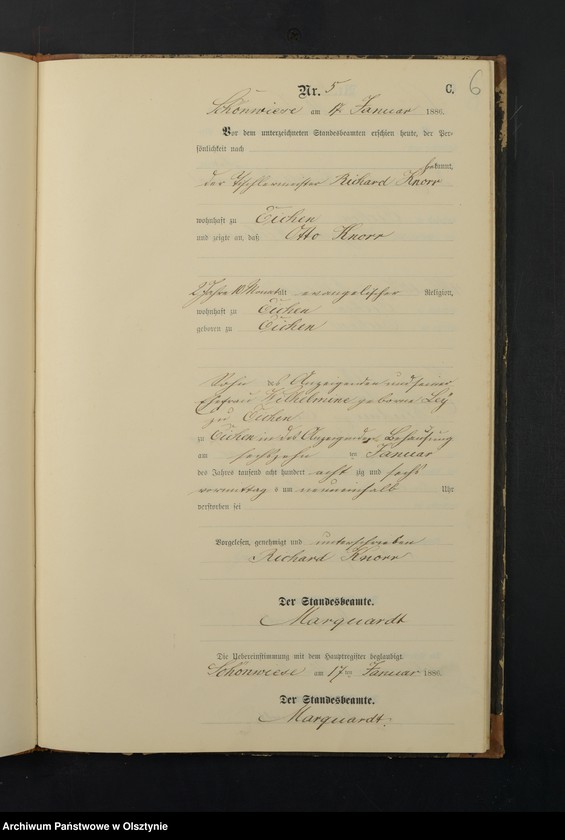 Nr. 5
C. 6
Schönwiese am 17 Januar 1886.
Vor dem unterzeichneten Standesbeamten erschien heute, der Per-
sönlichkeit nach
bekannt,
der Tischlermeister Richard Knorr
wohnhaft zu Eichen
und zeigte an, daß Otto Knorr
2 Jahre 10 Monat alt evangelischer Religion,
wohnhaft zu Eichen
geboren zu Eichen
Sohn des Anzeigenden und seiner
Ehefrau Wilhelmine geborne Ley
zu Eichen
zu Eichen in des Anzeigenden Behausung
am sechszehn ten Januar
des Jahres tausend acht hundert acht zig und sechs
vormittag s um neuneinhalb Uhr
verstorben sei
Vorgelesen, genehmigt und unterschrieben
Richard Knorr
Der Standesbeamte.
Marquardt
Die Uebereinstimmung mit dem Hauptregister beglaubigt
Schönwiese am 17ten Januar 1886.
Der Standesbeamte.
Marquardt.
Archiwum Państwowe w Olsztynie